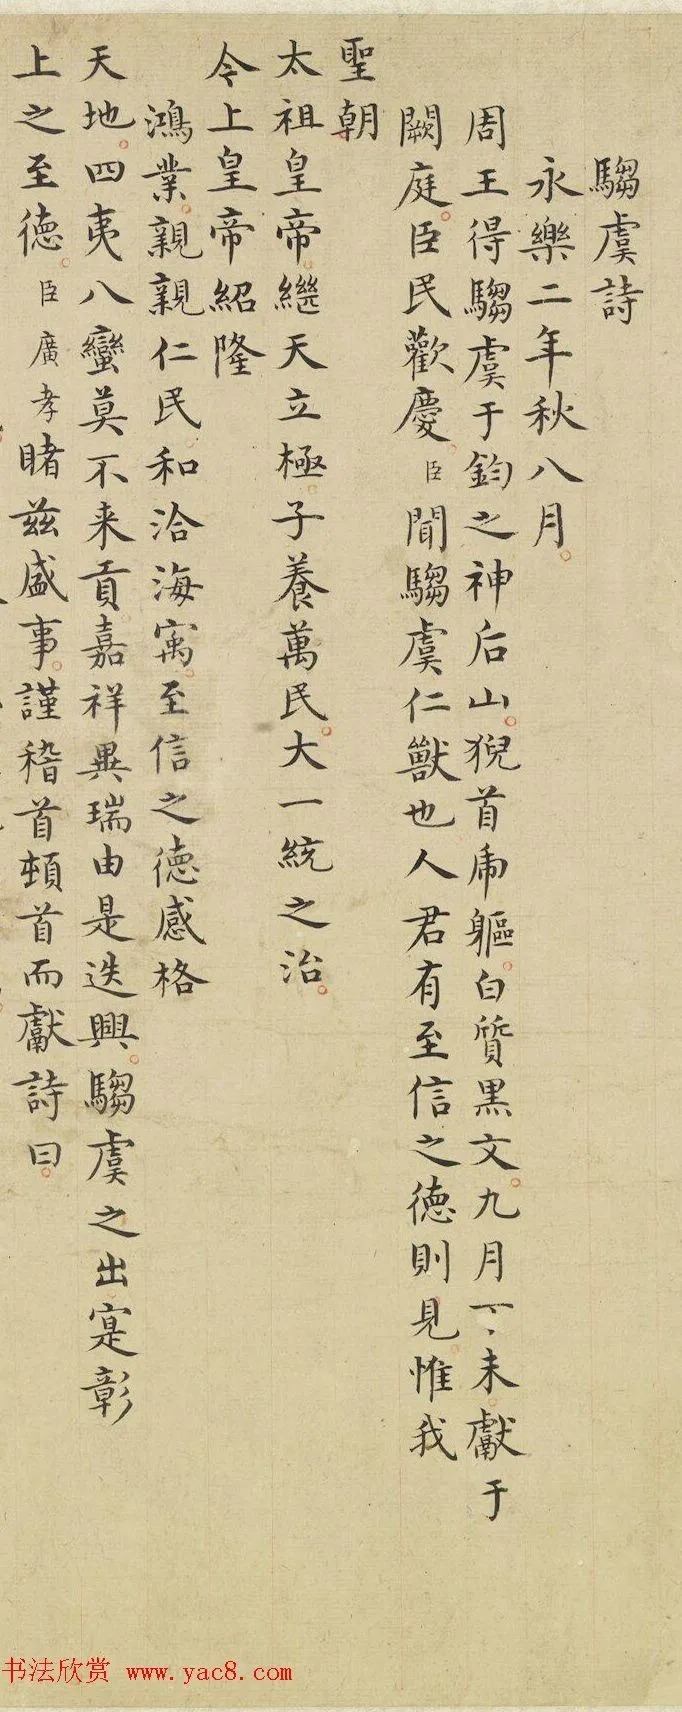 騶虞詩
永樂二年秋八月
周王得騶虞于鈞之神后山猊首虎軀白質黒文九月丁未獻于
闕庭臣民歡慶臣聞騶虞仁獸也人君有至信之德則見惟我
聖朝
太祖皇帝繼天立極子養萬民大一統之治
今上皇帝紹隆
鴻業親親仁民和洽海寓至信之德感格
天地四夷八蠻莫不来貢嘉祥異瑞由是迭興騶虞之出寔彰
上之至德臣廣孝睹兹盛事謹稽首頓首而獻詩曰
书法欣赏 www.yac8.com